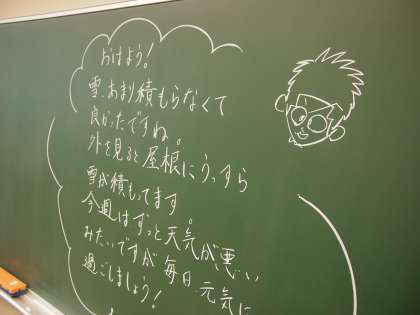 おはよう!
雪、あまり積もらなくて
良かったですね。
外を見ると屋根にうっすら
雪が積もってます
今週はずっと天気が悪い
みたいですが毎日元気に
過ごしましょう!